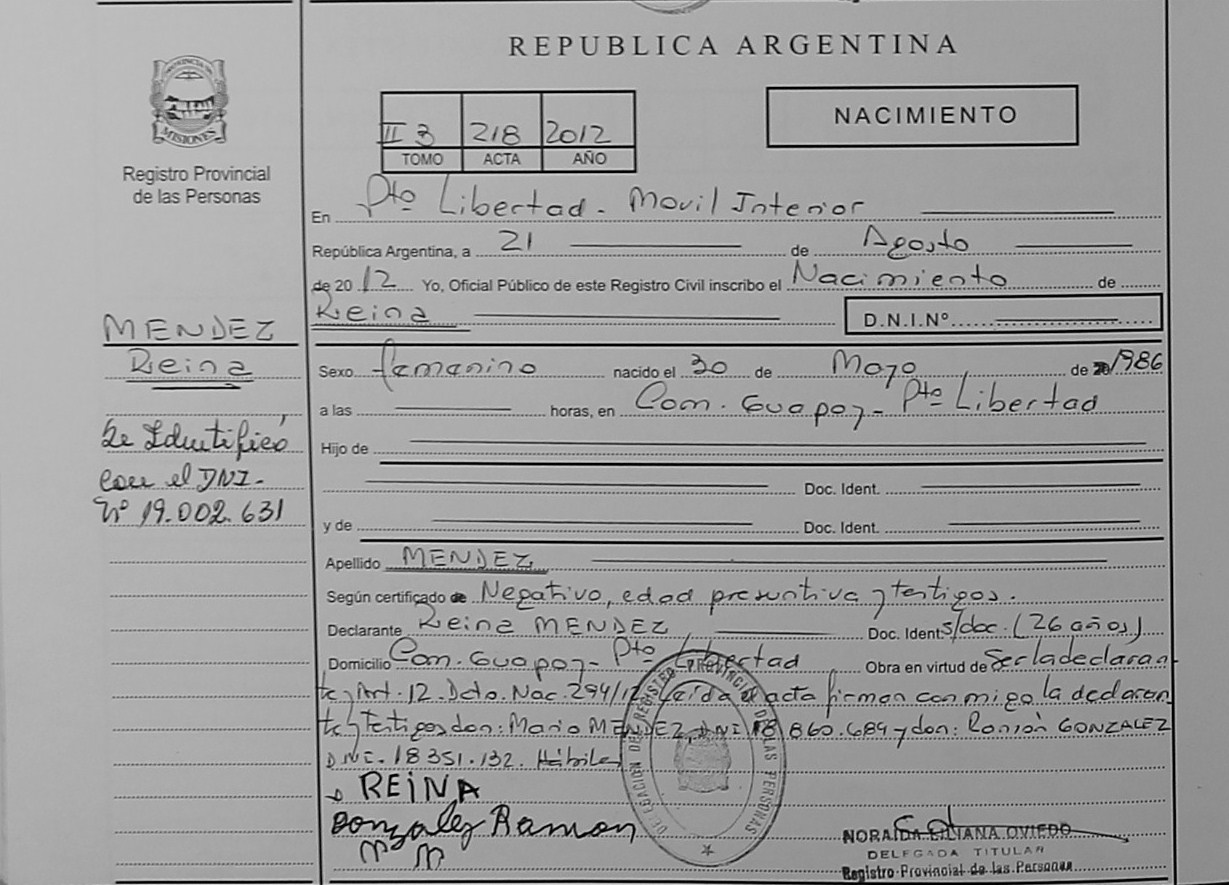 REPUBLICA ARGENTINA
PROVINCIA DE MISIONES
Registro Provincial
de las Personas
II 3 218 2012
TOMO ACTA AÑO
NACIMIENTO
En Pto Libertad - Movil Interior
República Argentina, a 21 de Agosto
de 2012 Yo, Oficial Público de este Registro Civil inscribo el Nacimiento de
Reina D.N.I.Nº
MENDEZ
Reina
Se Identificó
con el DNI-
Nº 19.002.631
Sexo femenino nacido el 30 de Mayo de 1986
a las horas, en Com. Guapoy - Pto Libertad
Hijo de
Doc. Ident.
y de Doc. Ident.
Apellido MENDEZ
Según certificado de Negativo, edad presuntiva y testigos.
Declarante Reina MENDEZ, Doc. Ident. s/doc. (26 años)
Domicilio Com. Guapoy - Pto Libertad Obra en virtud de Ser la declaran
te, Art. 12. Dcto. Nac. 294/12 Leída el acta firman conmigo la declaran
te y testigos don: Mario MENDEZ, DNI 18.860.689 y don: Ramón GONZALEZ
DNI. 18351.132. Hábiles
REINA
Gonzalez Ramon
DELEGACION DEL REGISTRO PROVINCIAL DE LAS PERSONAS
NORAIDA LILIANA OVIEDO
DELEGADA TITULAR
Registro Provincial de las Personas